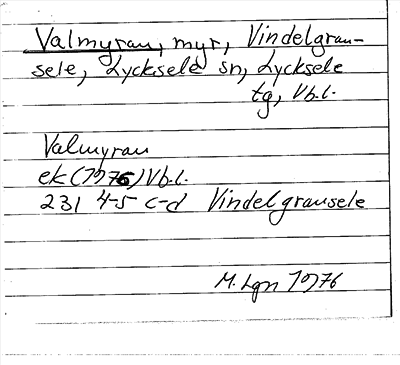 Valmyran, myr, Vindelgran-
sele, Lycksele sn, Lycksele
tg, Vb.l.
Valmyran
ek (1976) Vb.l.
231 4-5 c-d Vindelgransele
M. Lgn 1976